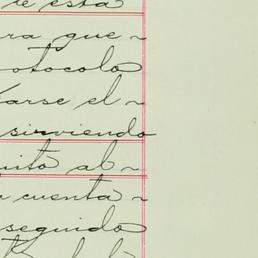 re esta
ra que~
otocolo
arse el~
sirviendo
uito al~
cuenta~
seguido